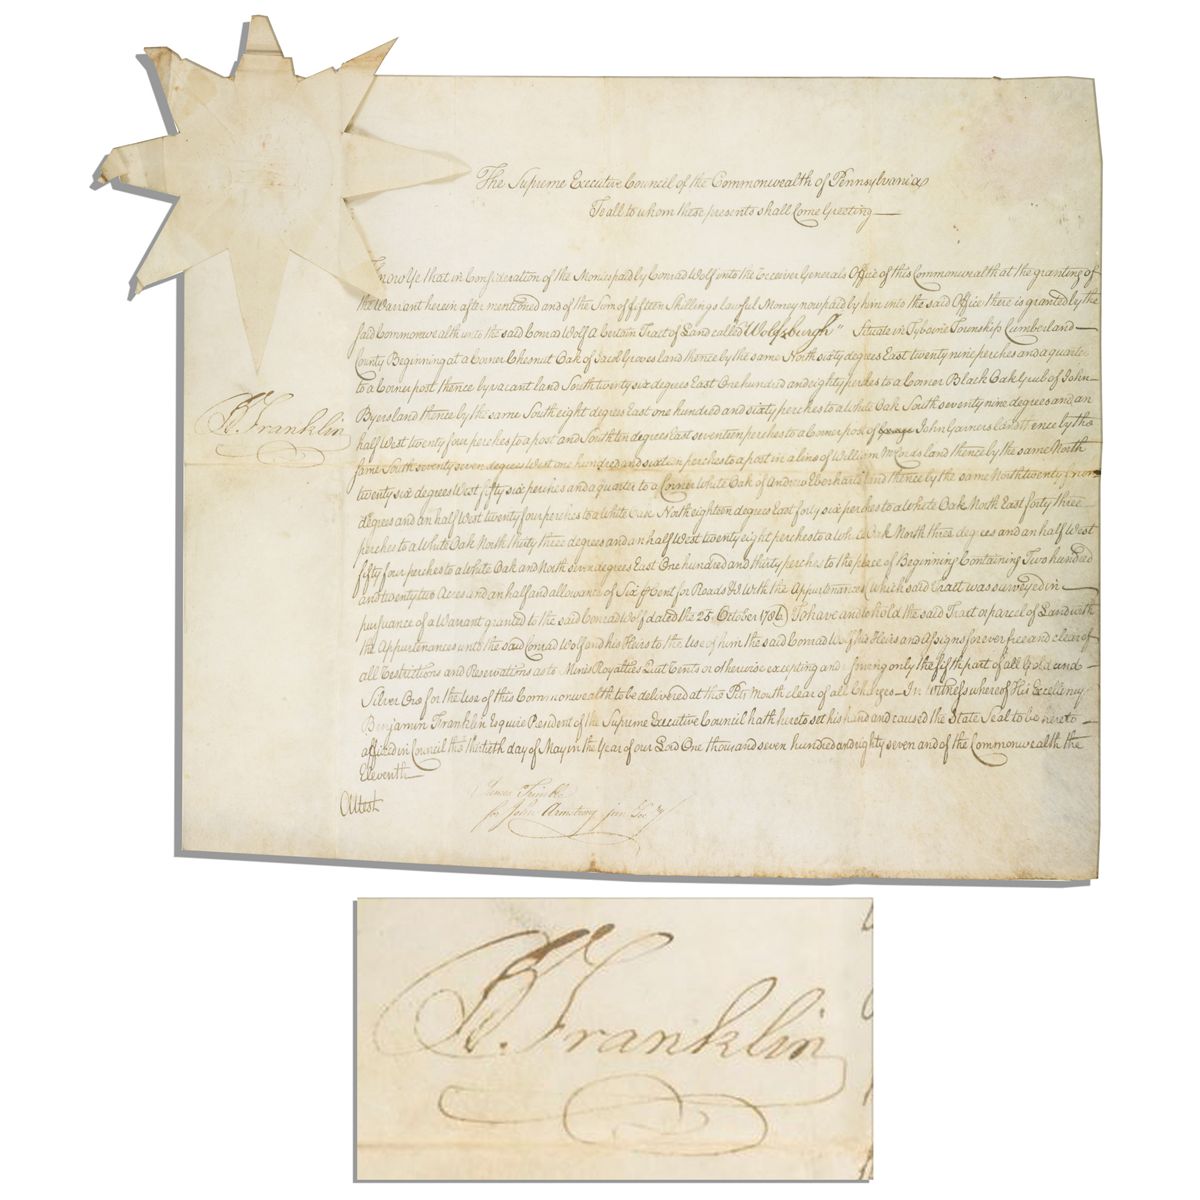 The Supreme Executive Council of the Commonwealth of Pennsylvania
To all to whom these presents shall Come Greeting
Know Ye that in Consideration of the Monies paid by Conrad Wolf into the Receiver Generals Office of this Commonwealth at the granting of
the Warrant herein after mentioned and of the Sum of fifteen Shillings lawful Money now paid by him into the said Office there is granted by the
said Commonwealth unto the said Conrad Wolf A Certain Tract of Land called "Wolfsburgh" Situate in Tyboine Township Cumberland
County Beginning at a Corner Chesnut Oak of Jacob Groves land thence by the same North sixty degrees East twenty nine perches and a quarter
to a Corner post thence by vacant land South twenty six degrees East One hundred and eighty perches to a Corner Black Oak Grub of John
Byers land thence by the same South eight degrees East one hundred and sixty perches to a White Oak South seventy nine degrees and an
half West twenty four perches to a post and South ten degrees East seventeen perches to a Corner post of John Garners Land thence by the
same South seventy seven degrees West one hundred and sixteen perches to a post in a line of William McCords land thence by the same North
twenty six degrees West fifty six perches and a quarter to a Corner White Oak of Andrew Eberharts land thence by the same North twenty
degrees and an half West twenty four perches to a White Oak North eighteen degrees East forty six perches to a White Oak North East forty three
perches to a White Oak North thirty three degrees and an half West twenty eight perches to a White Oak North three degrees and an half West
fifty four perches to a White Oak and North seven degrees East One hundred and thirty perches to the place of Beginning Containing Two hundred
and twenty two Acres and an half and allowance of Six ⅌ Cent for Roads &c. With the Appurtenances which said Tract was surveyed in
pursuance of a Warrant granted to the said Conrad Wolf dated the 25 October 1786) To have and to hold the said Tract or parcel of Land with
the Appurtenances unto the said Conrad Wolf and his Heirs to the Use of him the said Conrad Wolf his Heirs and Assigns for ever free and clear of
all Restrictions and Reservations as to Mines Royalties Quit Rents or otherwise excepting and reserving only the fifth part of all Gold and
Silver Ore for the Use of this Commonwealth to be delivered at the Pits Mouth clear of all Charges In Witness whereof His Excellency
Benjamin Franklin Esquire President of the Supreme Executive Council hath hereto set his hand and caused the State Seal to be hereto
affixed in Council this thirtieth day of May in the Year of our Lord One thousand seven hundred and eighty seven and of the Commonwealth the
Eleventh
B. Franklin
Attest
James Trimble
for John Armstrong jun. Secy
B. Franklin